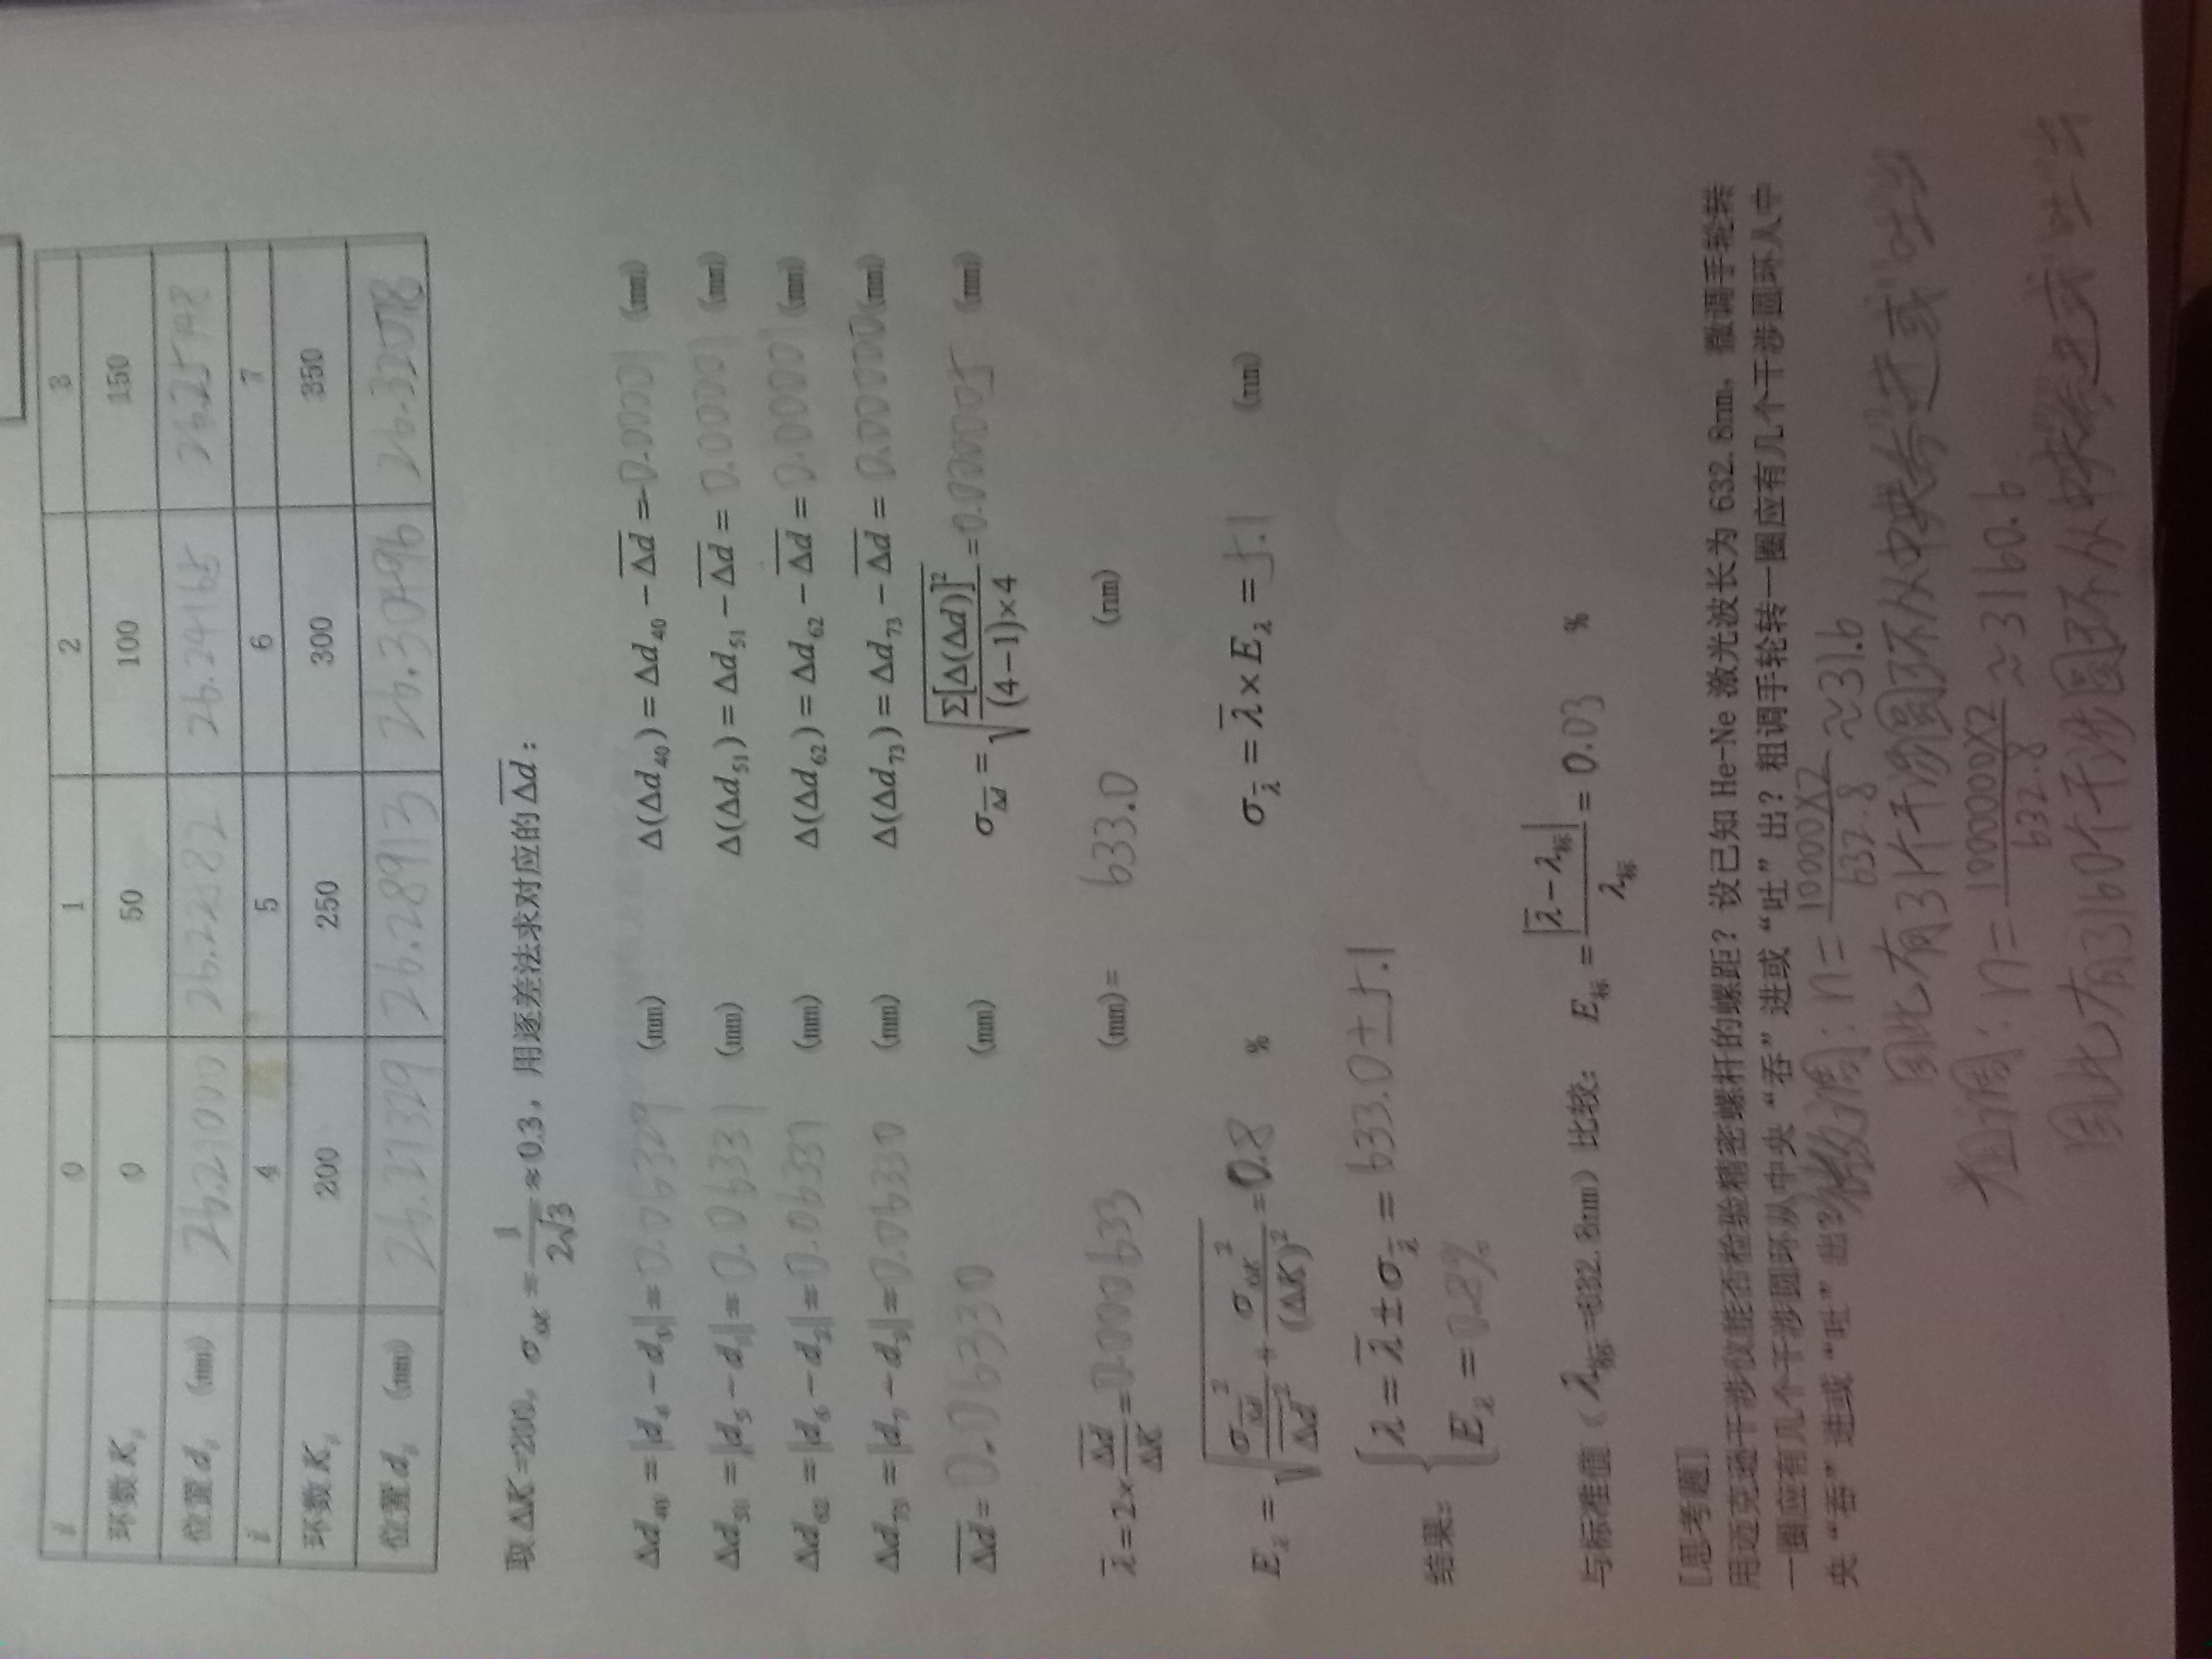 i 0 1 2 3
环数 Kᵢ 0 50 100 150
位置 dᵢ (mm) 26.21000 26.22582 26.24165 26.25748
i 4 5 6 7
环数 Kᵢ 200 250 300 350
位置 dᵢ (mm) 26.27329 26.28913 26.30496 26.32078
取 ΔK=200, σ_ΔK = 1/(2√3) ≈ 0.3, 用逐差法求对应的 Δd̅:
Δd₄₀ = |d₄ − d₀| = 0.06329 (mm) Δ(Δd₄₀) = Δd₄₀ − Δd̅ = -0.00001 (mm)
Δd₅₁ = |d₅ − d₁| = 0.06331 (mm) Δ(Δd₅₁) = Δd₅₁ − Δd̅ = 0.00001 (mm)
Δd₆₂ = |d₆ − d₂| = 0.06331 (mm) Δ(Δd₆₂) = Δd₆₂ − Δd̅ = 0.00001 (mm)
Δd₇₃ = |d₇ − d₃| = 0.06330 (mm) Δ(Δd₇₃) = Δd₇₃ − Δd̅ = 0.00000 (mm)
Δd̅ = 0.06330 (mm) σ_Δd̅ = √(Σ[Δ(Δd)]²/((4−1)×4)) = 0.000005 (mm)
λ̅ = 2×Δd̅/ΔK = 0.000633 (mm) = 633.0 (nm)
E_λ = √(σ_Δd̅²/Δd̅² + σ_ΔK²/(ΔK)²) = 0.8 % σ_λ̅ = λ̅ × E_λ = 5.1 (nm)
结果: { λ = λ̅ ± σ_λ̅ = 633.0 ± 5.1
E_λ = 0.8%
与标准值 (λ标=632.8nm) 比较: E标 = |λ̅ − λ标|/λ标 = 0.03 %
[思考题]
用迈克逊干涉仪能否检验精密螺杆的螺距? 设已知 He-Ne 激光波长为 632.8nm, 微调手轮转
一圈应有几个干涉圆环从中央“吞”进或“吐”出? 粗调手轮转一圈应有几个干涉圆环人中
央“吞”进或“吐”出?
微调: n = 10000×2/632.8 ≈ 31.6
因此有31个干涉圆环从中央“吞”进或“吐”出
粗调: n = 1000000×2/632.8 ≈ 3160.6
因此有3160个干涉圆环从中央“吞”进或“吐”出